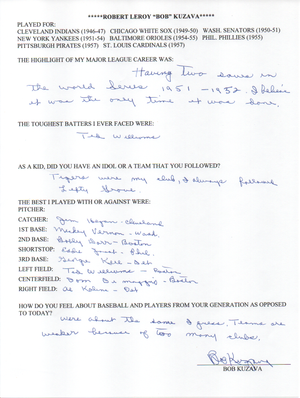 *****ROBERT LEROY "BOB" KUZAVA*****
PLAYED FOR:
CLEVELAND INDIANS (1946-47) CHICAGO WHITE SOX (1949-50) WASH. SENATORS (1950-51)
NEW YORK YANKEES (1951-54) BALTIMORE ORIOLES (1954-55) PHIL. PHILLIES (1955)
PITTSBURGH PIRATES (1957) ST. LOUIS CARDINALS (1957)
THE HIGHLIGHT OF MY MAJOR LEAGUE CAREER WAS:
Having Two saves in
the world series 1951 - 1952. I believe
it was the only time it was done.
THE TOUGHEST BATTERS I EVER FACED WERE:
Ted Williams
AS A KID, DID YOU HAVE AN IDOL OR A TEAM THAT YOU FOLLOWED?
Tigers were my club, I always followed
Lefty Grove.
THE BEST I PLAYED WITH OR AGAINST WERE:
PITCHER:
CATCHER: Jim Hegan - Cleveland
1ST BASE: Mickey Vernon - Wash
2ND BASE: Bobby Doerr - Boston
SHORTSTOP: - Phil.
3RD BASE: George Kell - Det
LEFT FIELD: Ted Williams - Boston
CENTERFIELD: Dom Dimaggio - Boston
RIGHT FIELD: Al Kaline - Det
HOW DO YOU FEEL ABOUT BASEBALL AND PLAYERS FROM YOUR GENERATION AS OPPOSED
TO TODAY?
were about the same I guess. Teams are
weaker because of too many clubs.
Bob Kuzava
BOB KUZAVA